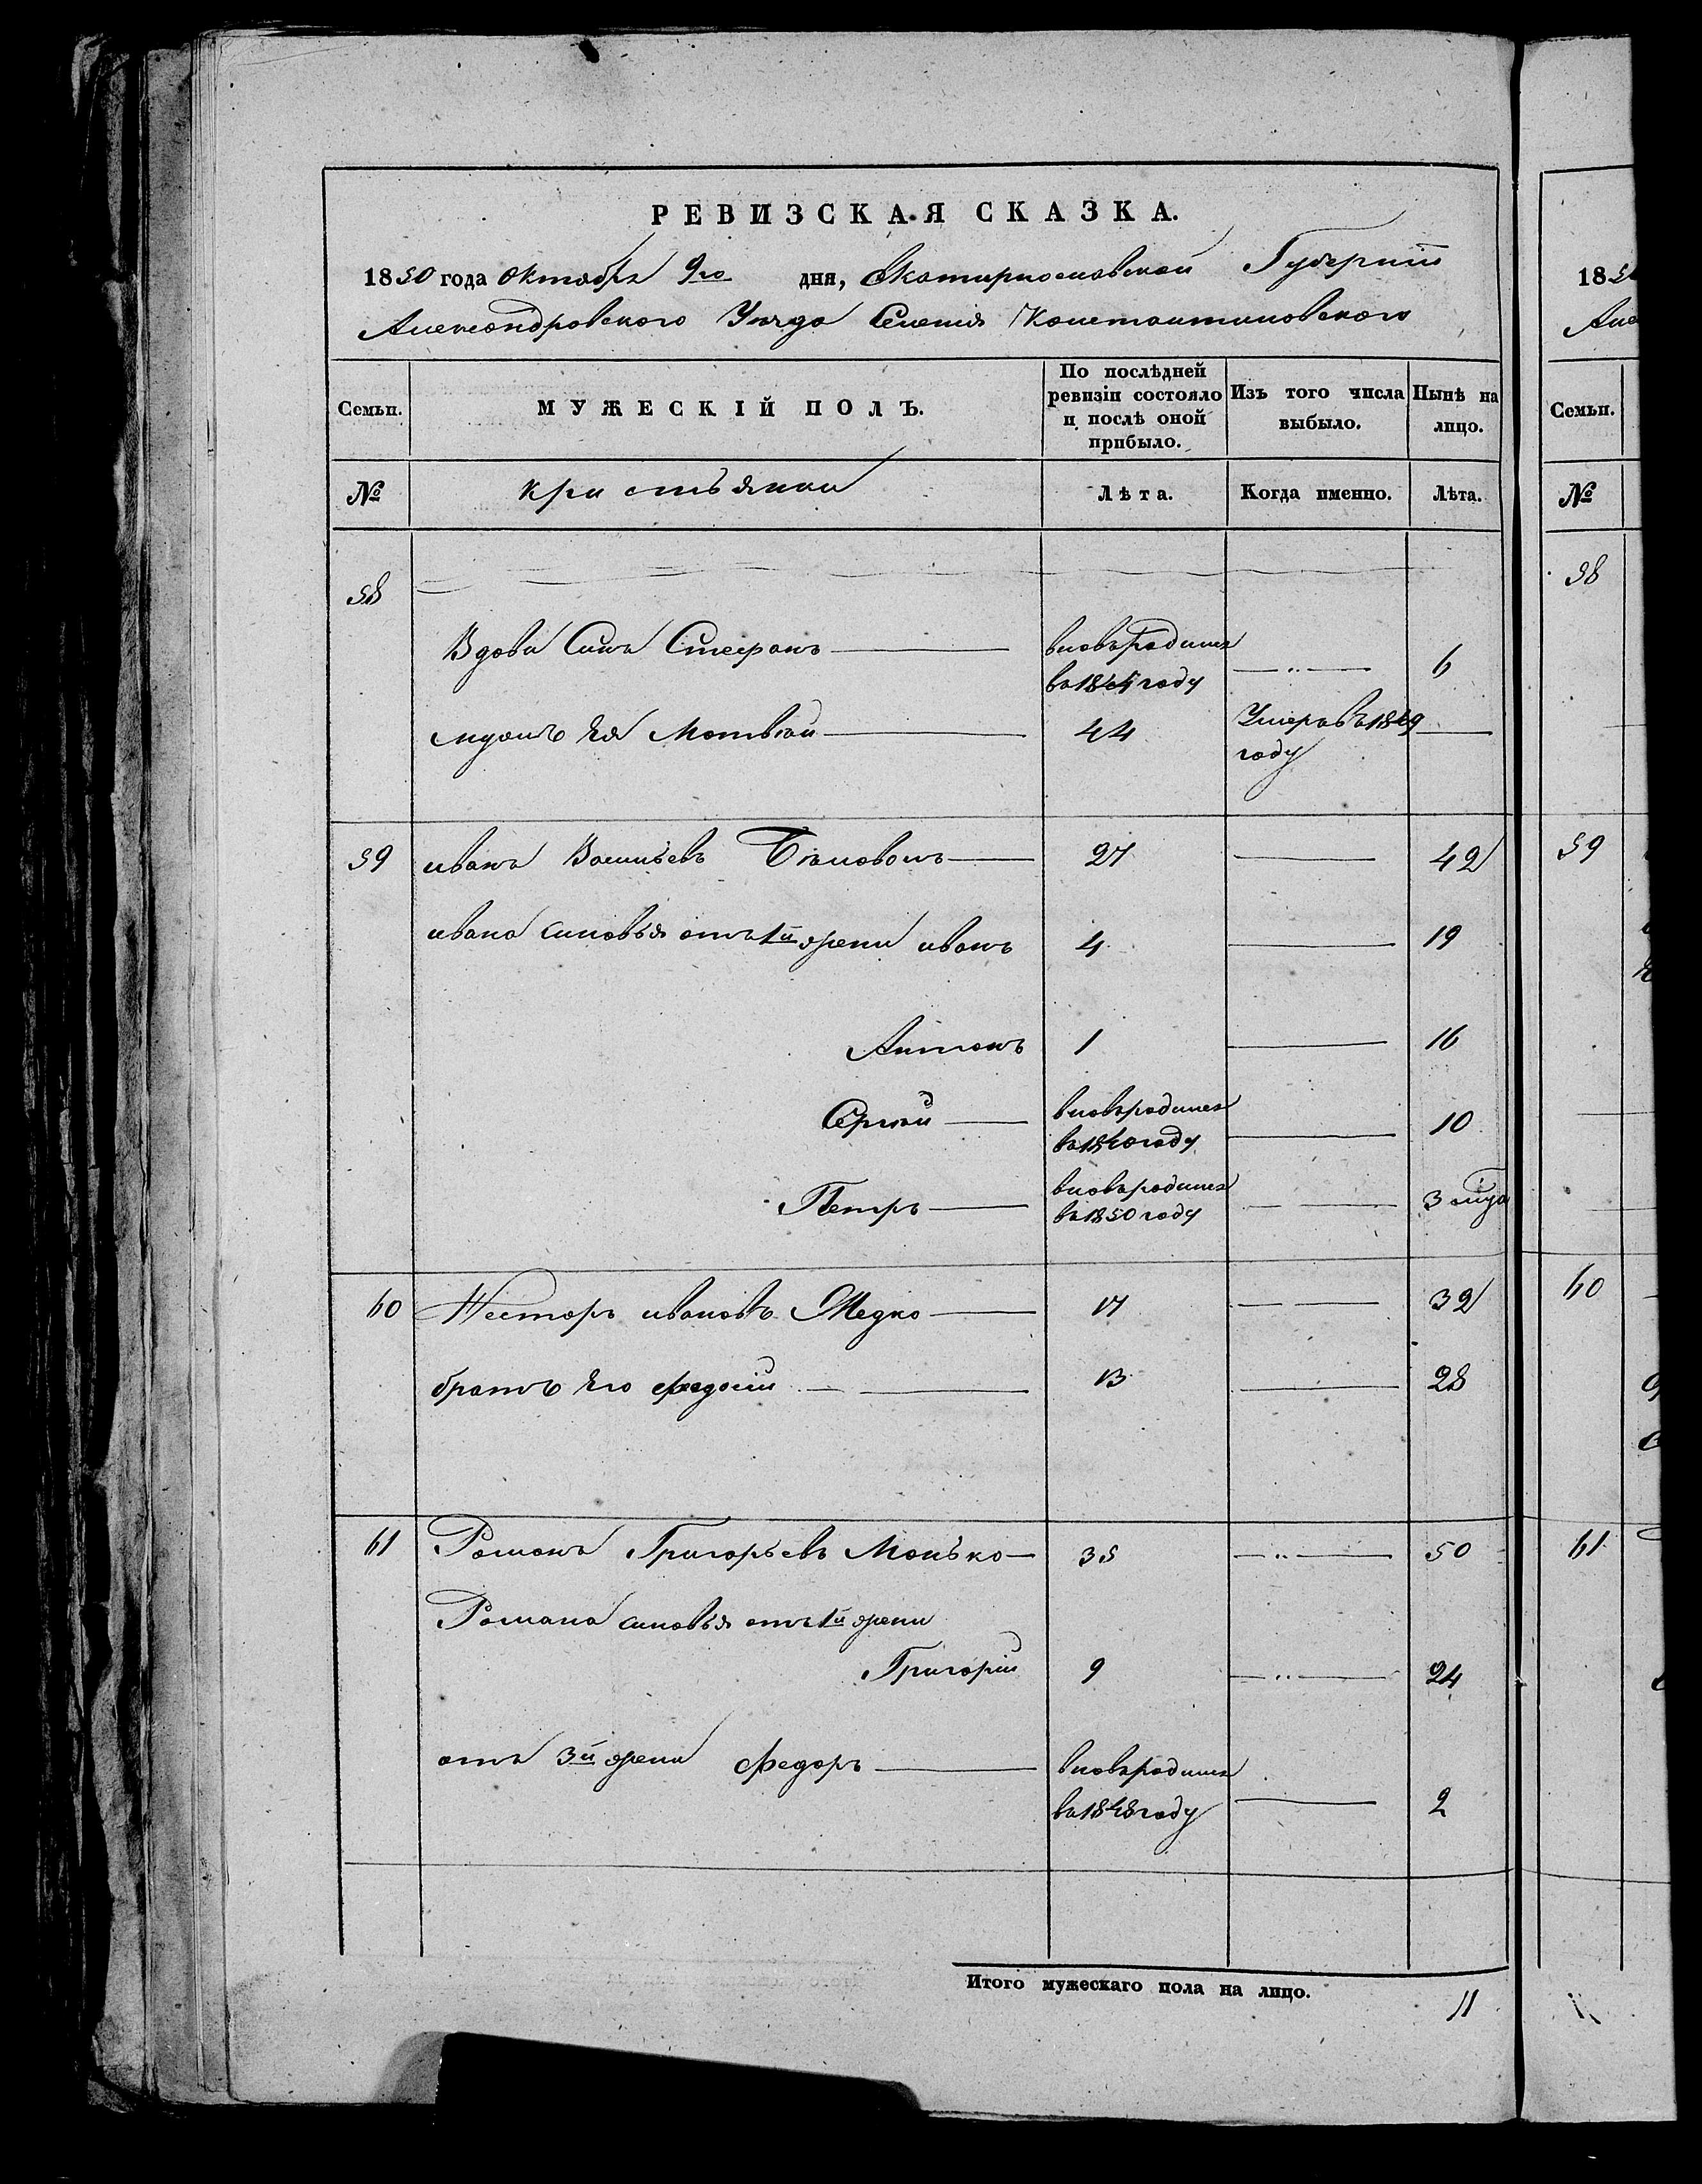 РЕВИЗСКАЯ СКАЗКА.
1850 года Октября 9го дня, Екатеринославской Губерніи
Александровского Уезда Селенія Константиновского
Семьи. МУЖЕСКІЙ ПОЛЪ. По послѣдней ревизіи состояло и послѣ оной прибыло. Изъ того числа выбыло. Нынѣ на лицо.
№ кристьянии Лѣта. Когда именно. Лѣта.
58
Вдовы Сынъ Стефанъ вновьродился въ 1844 году 6
мужъ Ея Матвѣй 44 Умеръ въ 1849 году
59 иванъ Васильевъ 27 42
ивана сыновья отъ 1й жены иванъ 4 19
Антонъ 1 16
Сергѣй вновьродился въ 1840 году 10
Петръ вновьродился въ 1850 году 3 мца
60 Несторъ ивановъ Медко 17 32
братъ Его Федосій 13 28
61 Романъ Григорьевъ Монько 35 50
Романа сыновья отъ 1й жены
Григорій 9 24
отъ 3й жены Федоръ вновьродился въ 1848 году 2
Итого мужескаго пола на лицо. 11
185
Але
Семьи.
№
58
59
60
61